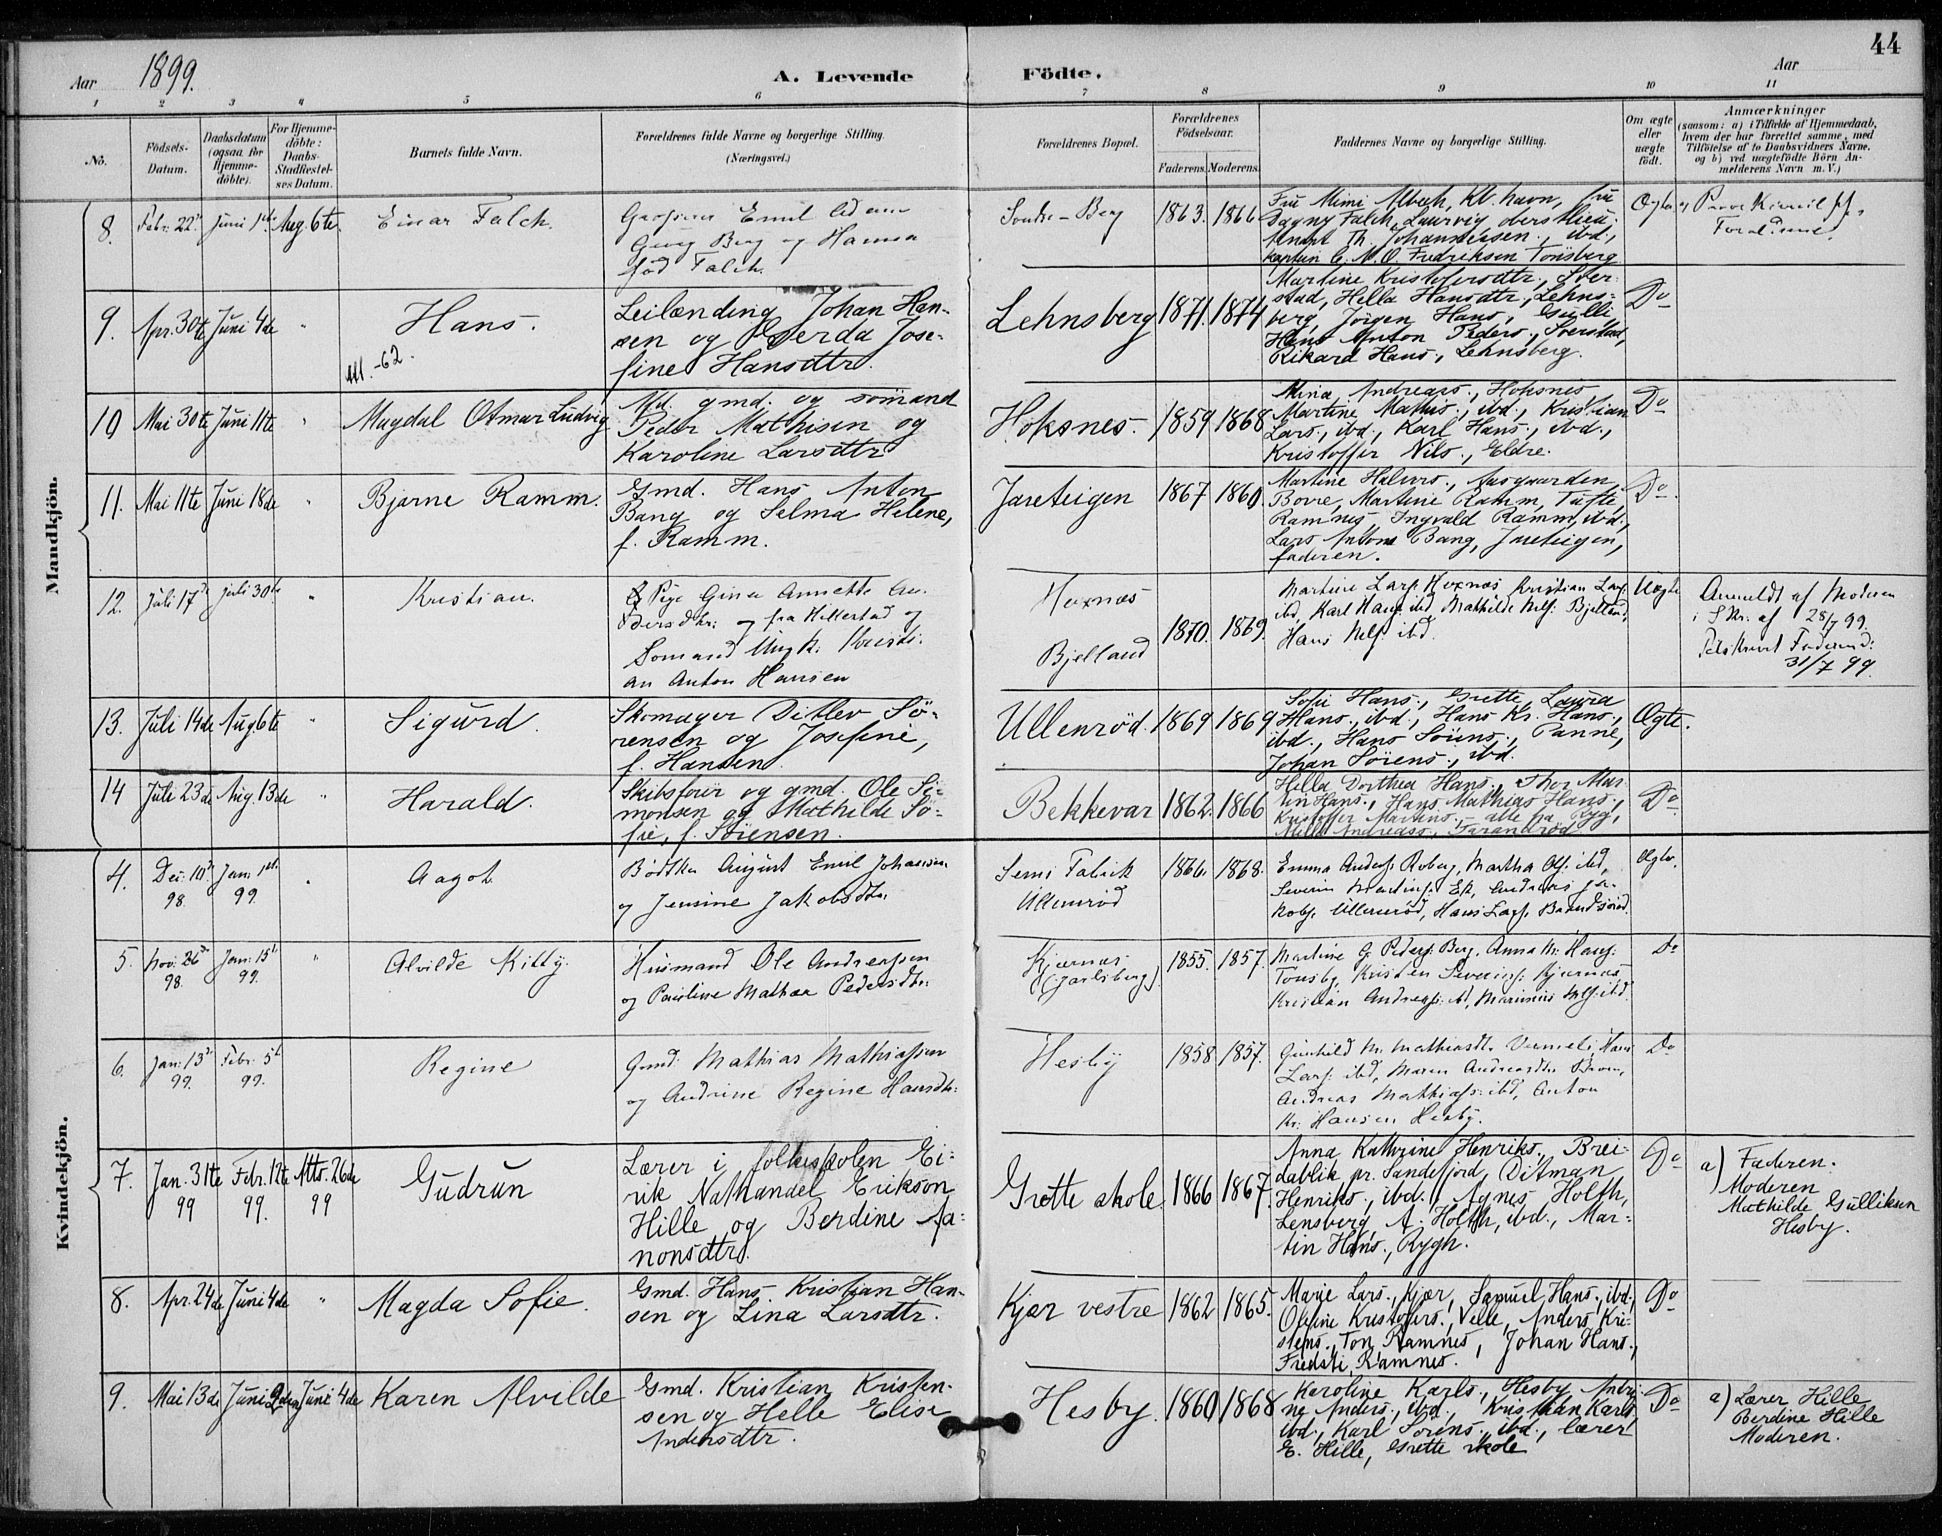 44
Aar 1899.
A. Levende Födte.
Aar
1 2 3 4 5 6 7 8 9 10 11
No.
Födsels-Datum.
Daabsdatum (ogsaa for Hjemme-döbte).
For Hjemme-döbte: Daabs-Stadfæstel-ses Datum.
Barnets fulde Navn.
Forældrenes fulde Navne og borgerlige Stilling. (Næringsvei.)
Forældrenes Bopæl.
Forældrenes Födselsaar.
Faderens. Moderens.
Faddernes Navne og borgerlige Stilling.
Om ægte eller uægte födt.
Anmærkninger
(saasom: a) i Tilfælde af Hjemmedaab,
hvem der har forrettet samme, med
Tilföielse af to Daabsvidners Navne,
og b) ved uægtefödte Börn An-
melderens Navn m. V.)
Mandkjön.
8. Febr. 22 Juni 1 Aug. 6te Einar Falch.
Emil
Georg Berg og Hanna
föd Falch.
Söndre-Berg 1863. 1866
Fru Mimi Kr.havn, fru
Dagny Falch, Laurvig, oberstlieu-
tenant Th. Johannesen, ibd.,
kaptein C. M. O. Fredriksen Tönsberg
Ægte
9. Apr. 30te Juni 4de " Hans.
-62.
Leilænding Johan Han-
sen og Gerda Jose-
fine Hansdtr.
Lehnsberg 1871. 1874
Martine Kristofersdtr., Sver-
stad, Hella Hansdtr., Lehns-
berg, Jörgen Hans., Gulli
Hans Anton Peders., Sverstad,
Rikard Hans., Lehnsberg.
Do
10 Mai 30te Juni 11te " Magdal Otmar Ludvig
gmd. og sömand
Peder Mathisen og
Karoline Larsdtr
Hoksnes. 1859 1868
Mina Andreass., Hoksnes
Martine Mathis., ibd., Kristian
Lars., ibd., Karl Hans., ibd.,
Kristoffer Nils., Eldre.
Do
11. Mai 11te Juni 18de " Bjarne Ramm.
Gmd. Hans Anton
Bang og Selma Helene,
f. Ramm.
Jareteigen 1867 1860.
Martine Halvors., Aasgaarden,
Borre, Martine Ramm, Tufte,
Ramnes, Ingvald Ramm, ibd.,
Lars Antons Bang, Jareteigen,
faderen.
Do
12. Juli 17 juli 30te " Kristian.
Pige Gina Annette An-
dersdtr: og fra Hillestad og
Sömand Ungk. Kristi-
an Anton Hansen
Hoxnæs
Bjelland 1870. 1869.
Martine Larss. Hoxnæs, Kristian Larss.
ibd, Karl Hanss. ibd, Mathilde Nilss. Bjelland,
Hans Nilss. ibd.
Uægte
Anmeldt af Moderen
i Skr. af 28/7 99.
31/7 99.
13. Juli 14de Aug 6te " Sigurd.
Skomager Ditlev Sö-
rensen og Josefine,
f. Hansen.
Ullenröd. 1869 1869
Sofie Hans., Grette, Laura
Hans., ibd., Hans Kr. Hans.,
ibd., Hans Sörens., Tanne,
Johan Sörens., ibd.
Ægte.
14 Juli 23de Aug. 13de " Harald.
Skibsförer og gmd. Ole Si-
monsen og Mathilde So-
fie, f. Sörensen.
Bekkevar 1862. 1866
Hella Dorthea Hans., Thor Mar-
tin Hans., Hans Mathias Hans.,
Kristoffer Martins., - alle fra Ryg,
Andreass.,
Do
Kvindekjön.
4. Dec. 10 98. Jan. 1st 99. " Aagot.
Bödtker August Emil Johansen
og Jensine Jakobsdtr.
Sems Fabrik
Ullenröd 1866. 1868.
Emma Anderss. Roberg, Martha Ols. ibd,
Severin Martinss. Ek, Andreas Ja-
kobs. Ullenröd, Hans Larss.
Ægte.
5. Nov. 26 98. Jan. 15 99. " Alvilde Kitty.
Husmand Ole Andreassen
og Pauline Mathea Pedersdtr.
Kjærnæs
(Jarlsberg) 1855. 1857.
Martine G. Peders. Berg, Anna M. Hanss.
Tönsbg, Kristen Severins. Kjærnæs
Kristian Andreass. ibd, Marinius Nilss. ibd.
Do
6. Jan. 13 99. Febr. 5 99. Regine
Gmd. Mathias Mathiassen
og Andrine Regine Hansdtr.
Hesby 1858 1857.
Gunhild M. Mathiasdtr. Hans
Larss. ibd, Maren Andreasdtr.
Andreas Mathiass. ibd, Anton
Kr. Hansen Hesby.
Do
7. Jan. 31te 99 Febr. 12te 99. Mts. 26de 99 Gudrun
Lærer i folkeskolen Ei-
rik Nathanael Erikson
Hille og Berdine Aa-
nonsdtr.
Grette skole 1866 1867.
Anna Kathrine Henriks., Brei-
dablik pr. Sandefjord, Ditman
Henriks., ibd., Agnes Holth,
Lensberg, A. Holth, ibd., Mar-
tin Hans., Rygh.
Do
a) Faderen.
Moderen
Mathilde Gulliksen
Hesby.
8. Apr. 24de Juni 4de " Magda Sofie.
Gmd. Hans Kristian Han-
sen og Lina Larsdtr.
Kjær vestre 1862 1865.
Marie Lars., Kjær, Samuel Hans., ibd.,
Olefine Kristoffers., Velle, Anders Kri-
stens., Ton, Ramnes, Johan Hans.,
Fredsti, Ramnes.
Do
9. Mai 13de Juni 2den Juni 4de Karen Alvilde
Gmd. Kristian Kristen-
sen og Helle Elise
Andersdtr.
Hesby. 1860 1868
Karoline Karls., Hesby, Andri-
ne Anders., ibd., Kristian Karls.
ibd., Karl Sörens., ibd., lærer
E. Hille, Grette skole
Do
a) Lærer Hille
Berdine Hille
Moderen.